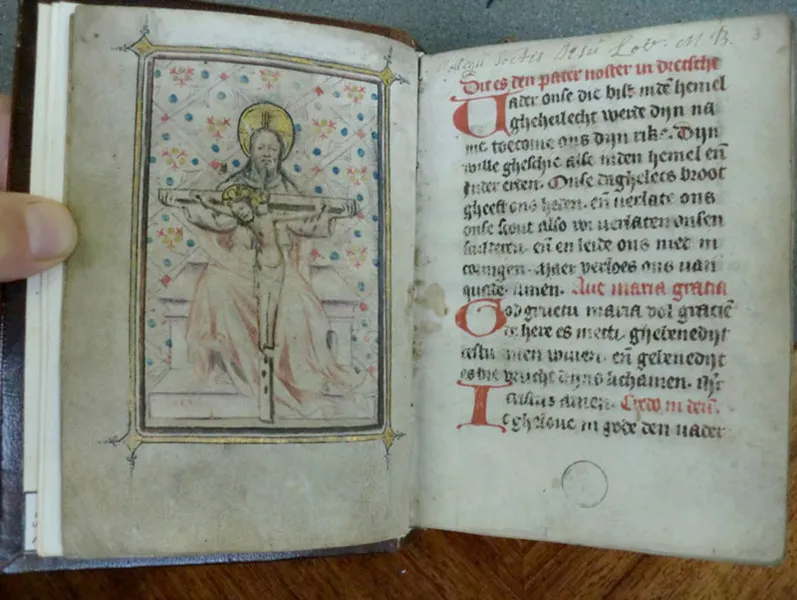 Collegii Soctis Jesu Lov. M B. 3
Dit es den pater noster in dietsche
Uader onse die bist inde hemel
gheheilecht werde dijn na
me toecome ons dijn rike. Dijn
wille ghescie alse inden hemel en̄
inder erden. Onse daghelecs broot
gheeft ons heden. en̄ verlate ons
onse scout also wi verlaten onsen
en̄ en leide ons niet in
maer verloes ons van
quade. amen. Aue maria gratia
God gruetu maria vol gracien̄
die here es metti. ghebenedijt
bestu bouen wiuen. en̄ gebenedijt
es die vrucht dijns lichamen.
cristus amen. Credo in deū.
Ic gheloue in gode den uader